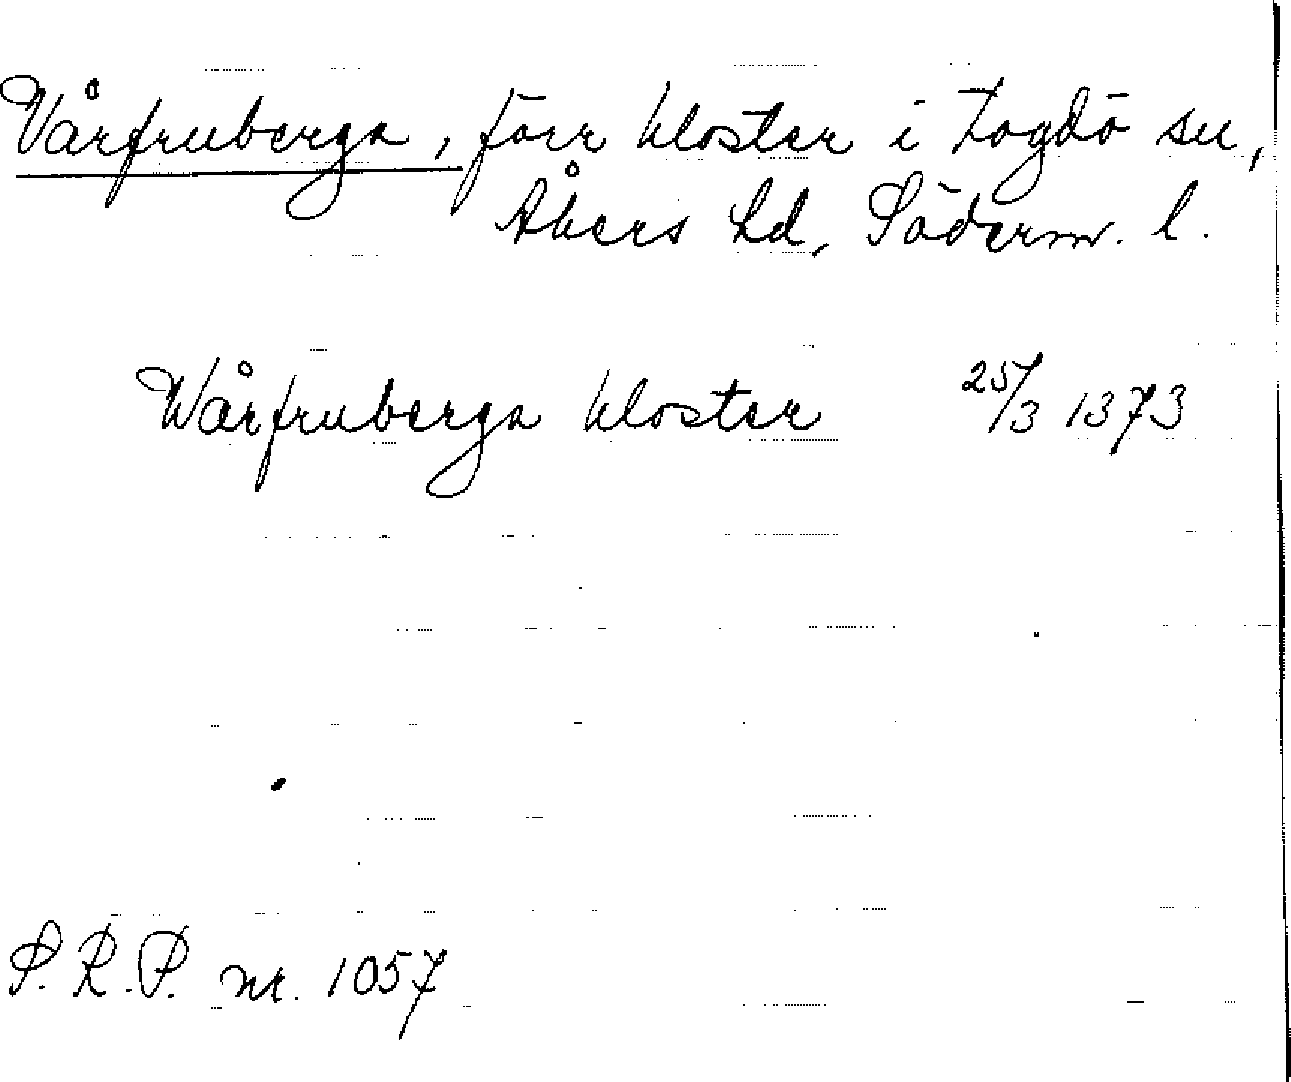 Vårfruberga, förr kloster i Togdö sn,
Åkers hd, Söderm. l.
Wårfruberga kloster 25/3 1373
S.R.P. nr. 1057